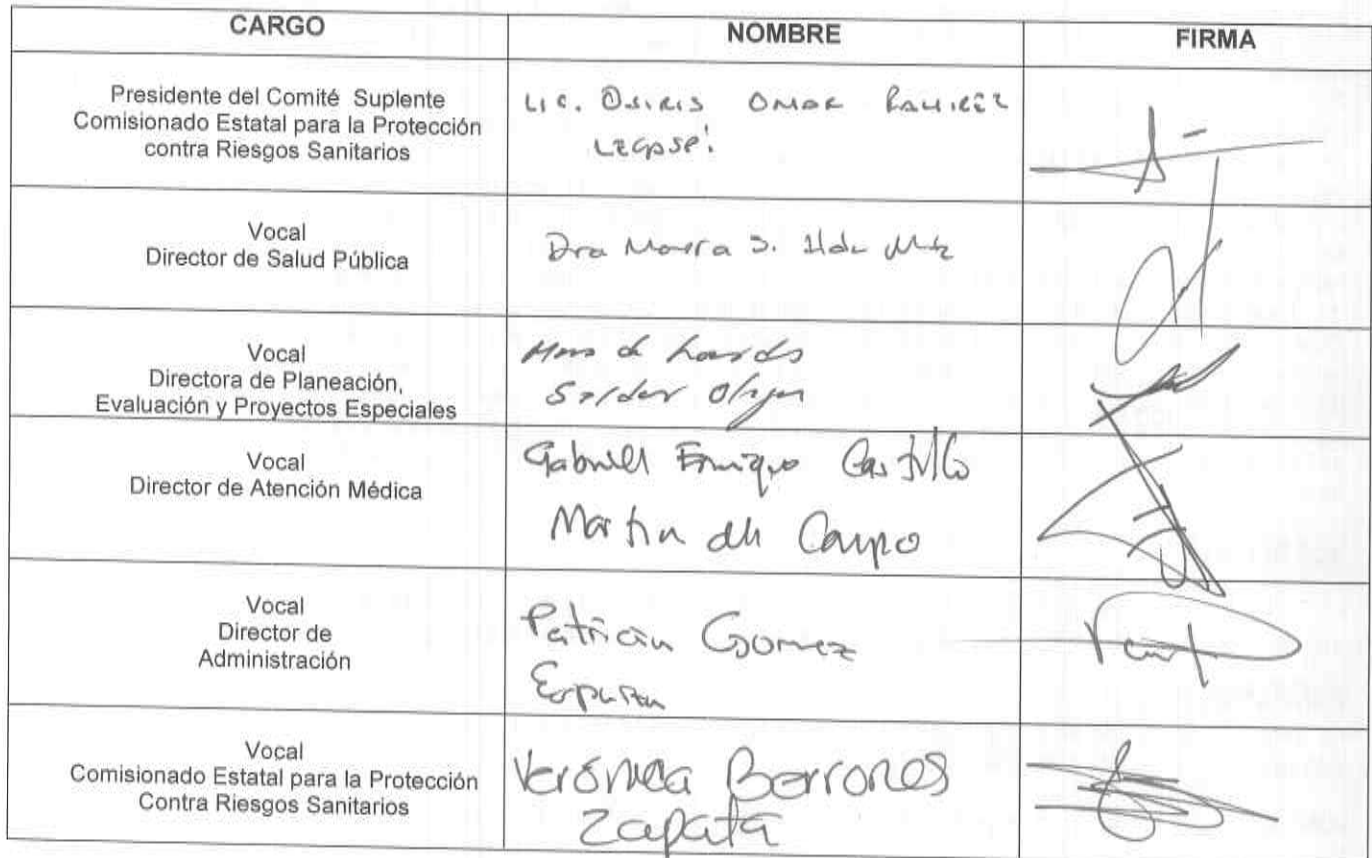 CARGO NOMBRE FIRMA
Presidente del Comité Suplente
Comisionado Estatal para la Protección
contra Riesgos Sanitarios
Lic. Osiris Omar Ramírez
Vocal
Director de Salud Pública
Dra
Vocal
Directora de Planeación,
Evaluación y Proyectos Especiales
Vocal
Director de Atención Médica
Gabriel Enrique Castillo
Martin del Campo
Vocal
Director de
Administración
Patricia Gomez
Vocal
Comisionado Estatal para la Protección
Contra Riesgos Sanitarios
Verónica Berrones
Zapata